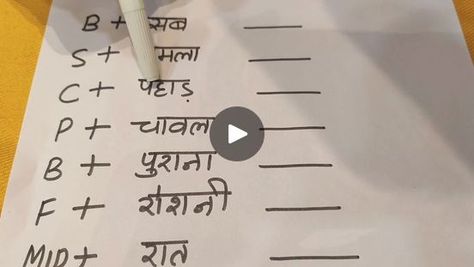 B + सब
S + मला
C + पहाड़
P + चावल
B + पुराना
F + रोशनी
MID + रात